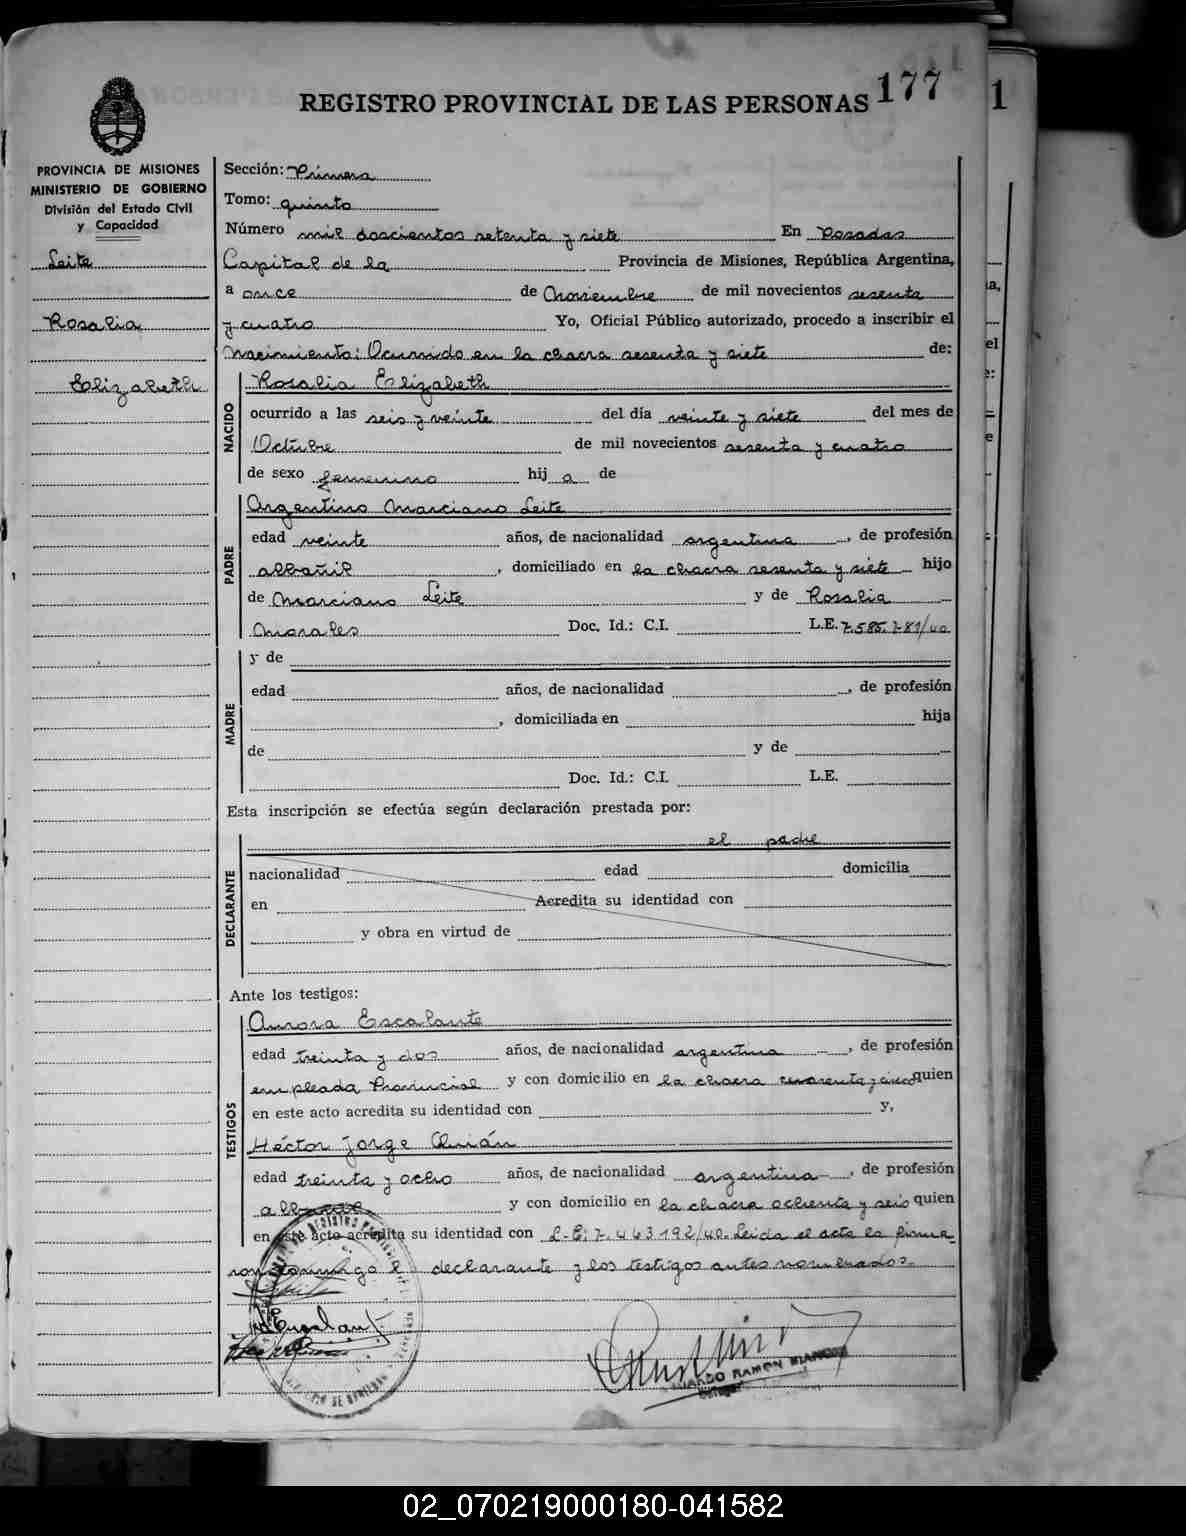 177
1
REGISTRO PROVINCIAL DE LAS PERSONAS
PROVINCIA DE MISIONES
MINISTERIO DE GOBIERNO
División del Estado Civil
y Capacidad
Leite
Rosalia
Elizabeth
Sección: Primera
Tomo: quinto
Número mil doscientos setenta y siete En Posadas
Capital de la Provincia de Misiones, República Argentina,
a once de Noviembre de mil novecientos sesenta
y cuatro Yo, Oficial Público autorizado, procedo a inscribir el
Nacimiento: Ocurrido en la chacra sesenta y siete de:
NACIDO
Rosalia Elizabeth
ocurrido a las seis y veinte del día veinte y siete del mes de
Octubre de mil novecientos sesenta y cuatro
de sexo femenino hij a de
PADRE
Argentino Marciano Leite
edad veinte años, de nacionalidad argentina, de profesión
albañil, domiciliado en la chacra sesenta y siete hijo
de Marciano Leite y de Rosalia
Morales Doc. Id.: C.I. L.E. 7.585.781/40
MADRE
y de
edad años, de nacionalidad , de profesión
, domiciliada en hija
de y de
Doc. Id.: C.I. L.E.
Esta inscripción se efectúa según declaración prestada por:
DECLARANTE
el padre
nacionalidad edad domicilia
en Acredita su identidad con
y obra en virtud de
Ante los testigos:
TESTIGOS
Aurora Escalante
edad treinta y dos años, de nacionalidad argentina, de profesión
empleada Provincial y con domicilio en la chacra cuarenta y cinco quien
en este acto acredita su identidad con y,
Héctor Jorge
edad treinta y ocho años, de nacionalidad argentina, de profesión
albañil y con domicilio en la chacra ochenta y seis quien
en este acto acredita su identidad con L.E; 7.463192/40. Leida el acta la firma
ron conmigo el declarante y los testigos antes nombrados.
RAMON BIANCO
02_070219000180-041582